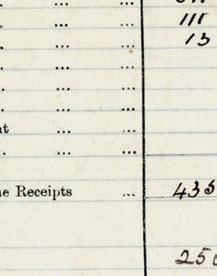 ... ...
... ... 111
... ... 13
... ...
... ...
... ...
t ... ...
... ...
e Receipts ... 435
250